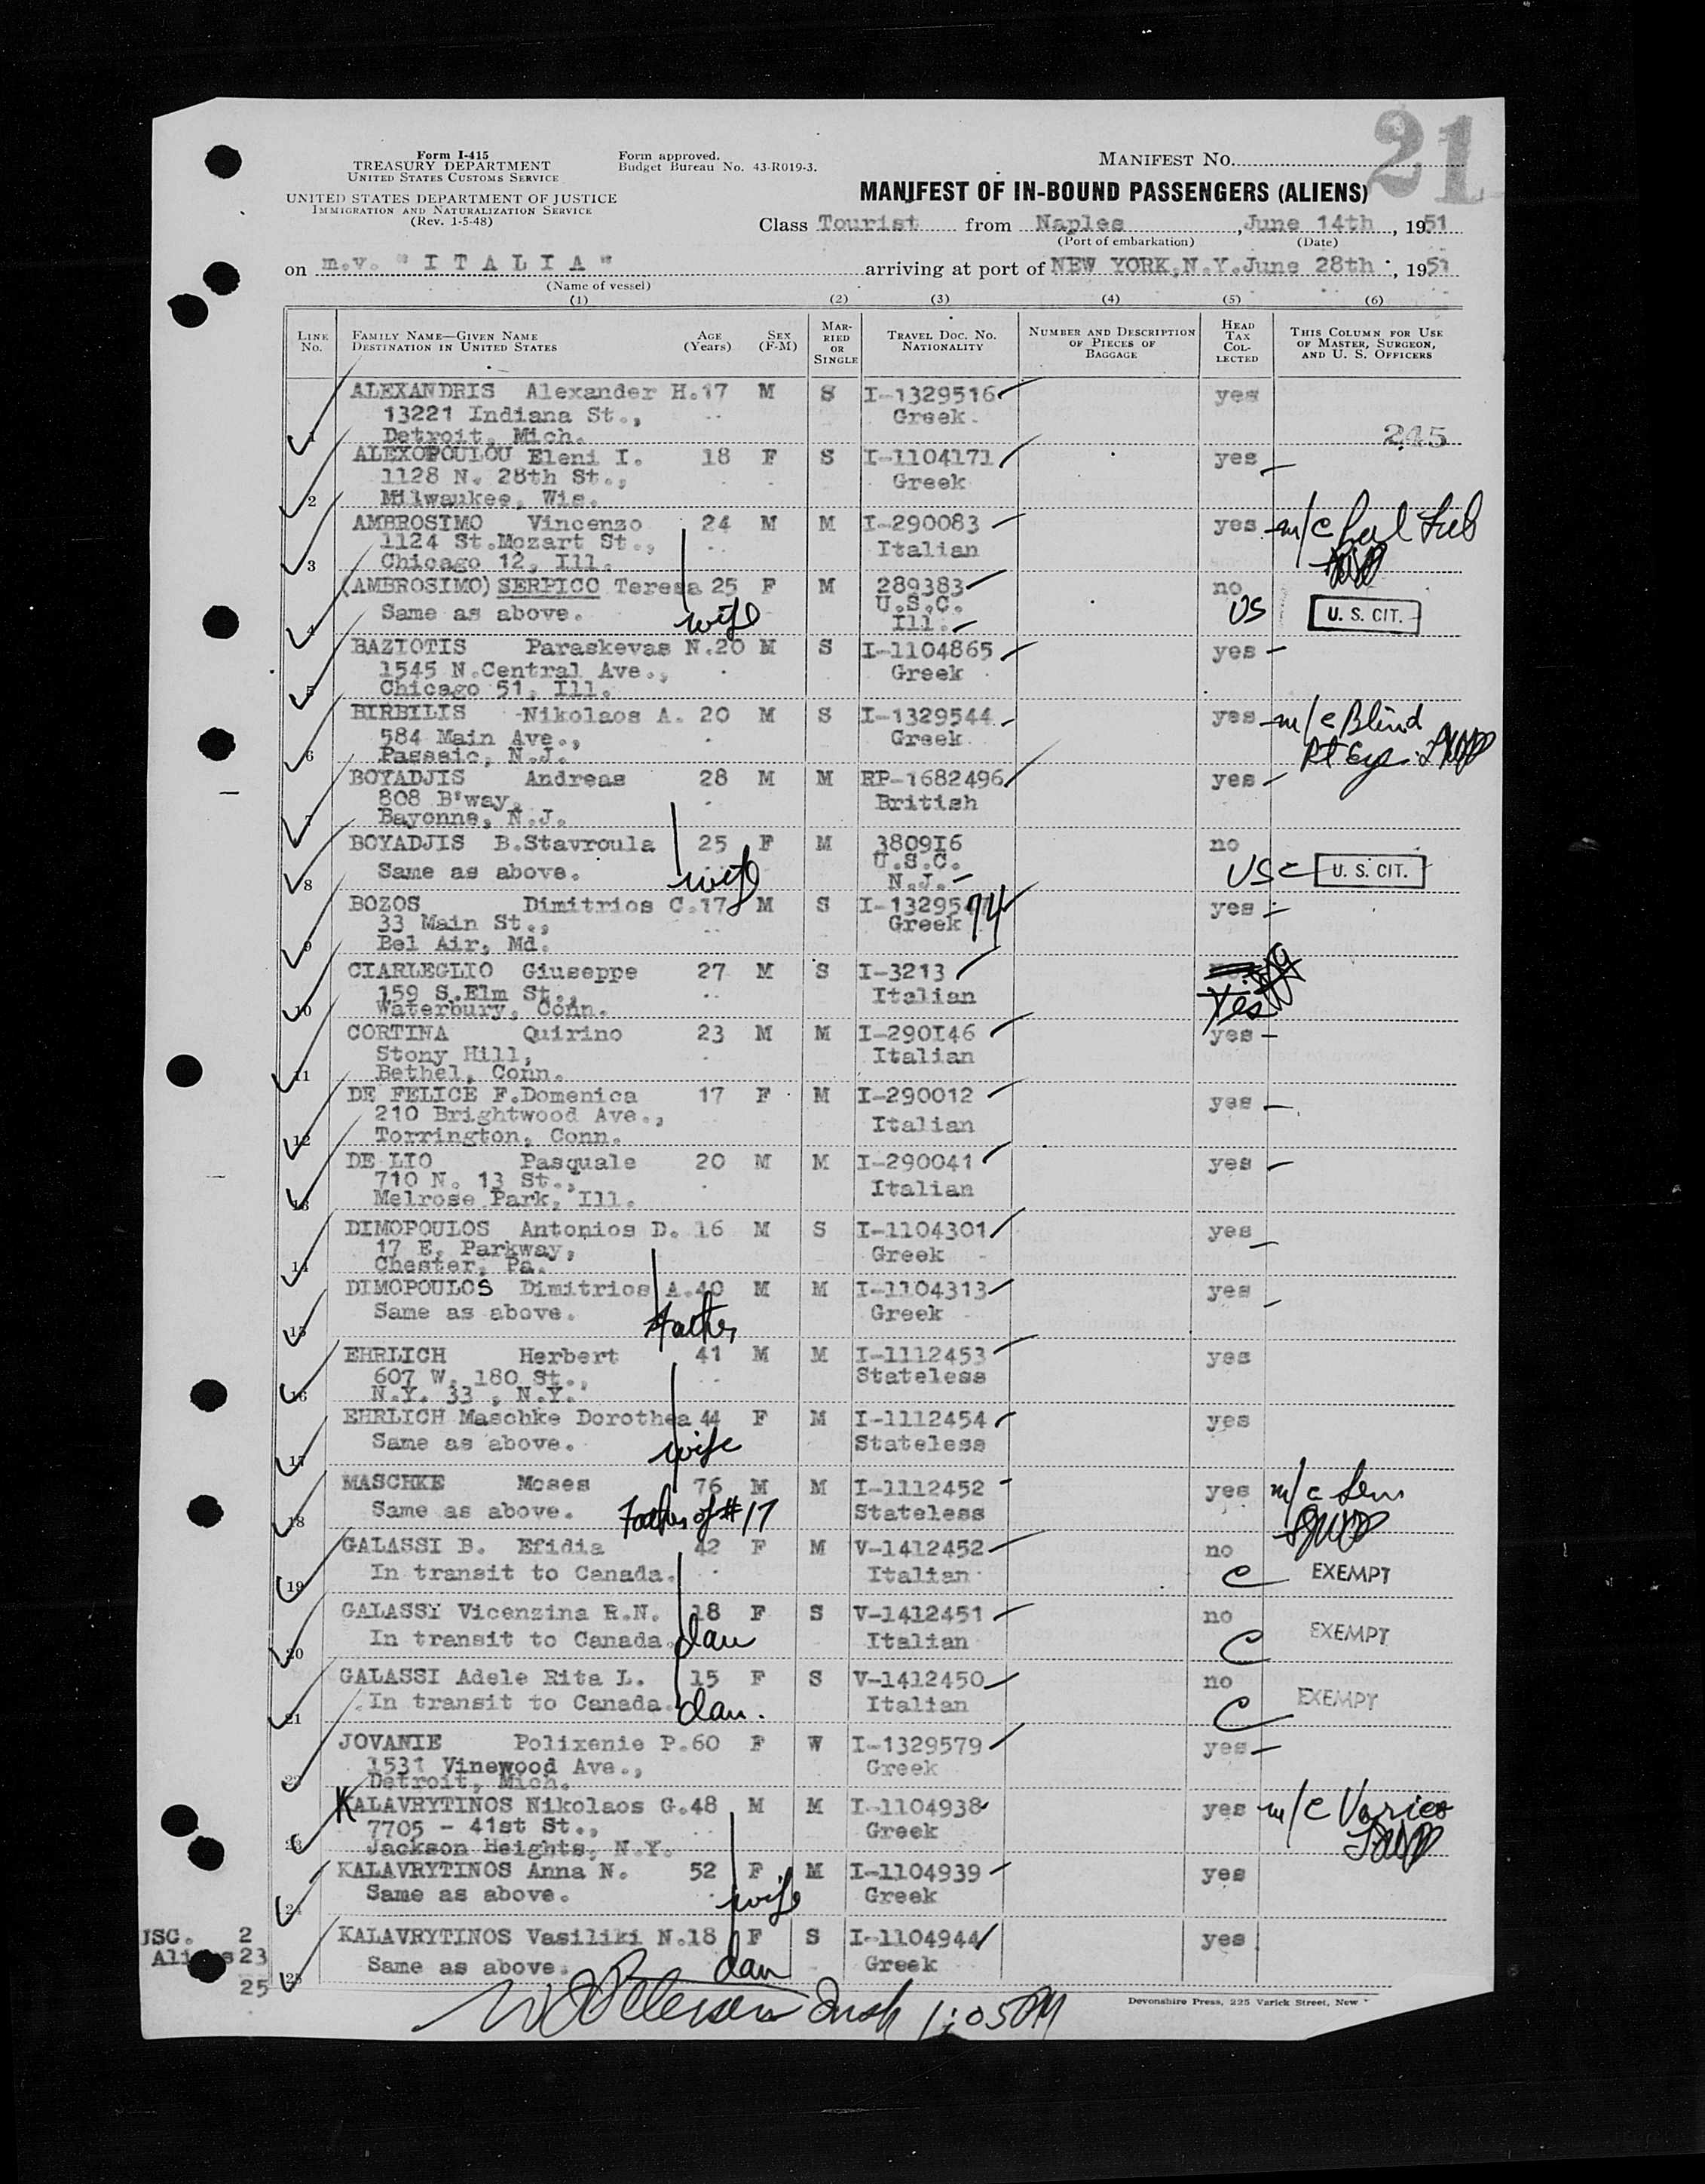 21
Form I-415
TREASURY DEPARTMENT
UNITED STATES CUSTOMS SERVICE
UNITED STATES DEPARTMENT OF JUSTICE
IMMIGRATION AND NATURALIZATION SERVICE
(Rev. 1-5-48)
Form approved.
Budget Bureau No. 43-R019-3.
MANIFEST NO.
MANIFEST OF IN-BOUND PASSENGERS (ALIENS)
Class Tourist from Naples, June 14th, 1951
(Port of embarkation) (Date)
on m.v. "I T A L I A" arriving at port of NEW YORK, N.Y. June 28th, 1951
(Name of vessel)
(1) (2) (3) (4) (5) (6)
LINE No. FAMILY NAME—GIVEN NAME DESTINATION IN UNITED STATES AGE (Years) SEX (F-M) MARRIED OR SINGLE TRAVEL DOC. NO. NATIONALITY NUMBER AND DESCRIPTION OF PIECES OF BAGGAGE HEAD TAX COLLECTED THIS COLUMN FOR USE OF MASTER, SURGEON, AND U. S. OFFICERS
ALEXANDRIS Alexander H. 17 M S I-1329516 yes
13221 Indiana St., Greek
1 Detroit, Mich. 245
ALEXOPOULOU Eleni I. 18 F S I-1104171 yes
1128 N. 28th St., Greek
2 Milwaukee, Wis.
AMBROSIMO Vincenzo 24 M M I-290083 yes m/c
1124 St.Mozart St., Italian
3 Chicago 12, Ill.
(AMBROSIMO) SERPICO Teresa 25 F M 289383 no
Same as above. wife U.S.C. US U. S. CIT.
4 Ill.
BAZIOTIS Paraskevas N. 20 M S I-1104865 yes
1545 N.Central Ave., Greek
5 Chicago 51, Ill.
BIRBILIS Nikolaos A. 20 M S I-1329544 yes m/c Blind
584 Main Ave., Greek Rt Eye
6 Passaic, N.J.
BOYADJIS Andreas 28 M M RP-1682496 yes
808 B'way, British
7 Bayonne, N.J.
BOYADJIS B.Stavroula 25 F M 380916 no
Same as above. wife U.S.C. USC U. S. CIT.
8 N.J.
BOZOS Dimitrios C. 17 M S I-1329574 yes
33 Main St., Greek
9 Bel Air, Md.
CIARLEGLIO Giuseppe 27 M S I-3213
159 S.Elm St., Italian Yes
10 Waterbury, Conn.
CORTINA Quirino 23 M M I-290146 yes
Stony Hill, Italian
11 Bethel, Conn.
DE FELICE F.Domenica 17 F M I-290012 yes
210 Brightwood Ave., Italian
12 Torrington, Conn.
DE LIO Pasquale 20 M M I-290041 yes
710 N. 13 St., Italian
13 Melrose Park, Ill.
DIMOPOULOS Antonios D. 16 M S I-1104301 yes
17 E. Parkway, Greek
14 Chester, Pa.
DIMOPOULOS Dimitrios A. 40 M M I-1104313 yes
15 Same as above. Father Greek
EHRLICH Herbert 41 M M I-1112453 yes
607 W. 180 St., Stateless
16 N.Y. 33, N.Y.
EHRLICH Maschke Dorothea 44 F M I-1112454 yes
17 Same as above. wife Stateless
MASCHKE Moses 76 M M I-1112452 yes m/c Sen
18 Same as above. Father of #17 Stateless
GALASSI B. Efidia 42 F M V-1412452 no
19 In transit to Canada. Italian C EXEMPT
GALASSY Vicenzina R.N. 18 F S V-1412451 no
20 In transit to Canada. dau Italian C EXEMPT
GALASSI Adele Rita L. 15 F S V-1412450 no
21 In transit to Canada. dau. Italian C EXEMPT
JOVANIE Polixenie P. 60 F W I-1329579 yes
1531 Vinewood Ave., Greek
22 Detroit, Mich.
KALAVRYTINOS Nikolaos G. 48 M M I-1104938 yes m/c Varico
7705 - 41st St., Greek
23 Jackson Heights, N.Y.
KALAVRYTINOS Anna N. 52 F M I-1104939 yes
24 Same as above. wife Greek
KALAVRYTINOS Vasiliki N. 18 F S I-1104944 yes
25 Same as above. dau Greek
USC. 2
Aliens 23
25
1:05 PM
Devonshire Press, 225 Varick Street, New